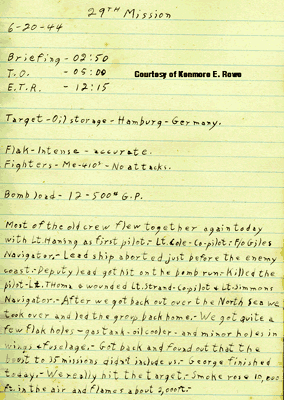 29TH Mission
6-20-44
Briefing - 02:50
T.O. - 05:00
Courtesy of Kenmore E. Rowe
E.T.R. - 12:15
Target - Oil storage - Hamburg - Germany.
Flak - Intense - accurate.
Fighters - Me-410s - No attacks.
Bomb load - 12 - 500# G.P.
Most of the old crew flew together again today
with Lt. Hansing as first pilot - Lt. Cole - Co-pilot - F/o Giles
Navigator. - Lead ship aborted just before the enemy
coast. - Deputy lead got hit on the bomb run - Killed the
pilot - Lt. Thoma & wounded Lt. Strand - Co pilot & Lt. Simmons
Navigator. - After we got back out over the North Sea we
took over and led the group back home. - We got quite a
few flak holes - gas tank - oil cooler - and minor holes in
wings & fuselage. Got back and found out that the
to 15 missions didn't include us. George finished
today. - We really hit the target. - Smoke rose 10,000
ft. in the air and flames about 2,000 ft.